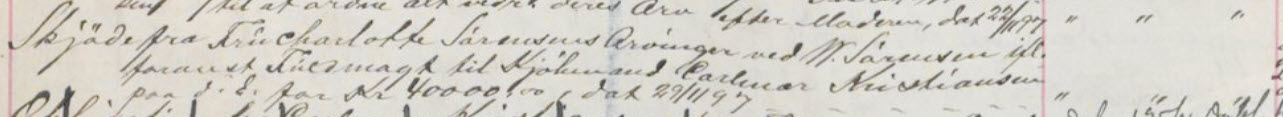 til at ordne alt vedr. deres Arv efter Moderen, dat 22/11 97 " " "
Skjøde fra Frü Charlotte Sørensens Arvinger ved W. Sørensen ifl.
foranst Füldmagt til Kjøbmand Carlmar Kristiansen
paa d. E. for Kr 40000,00, dat 29/11 97 "